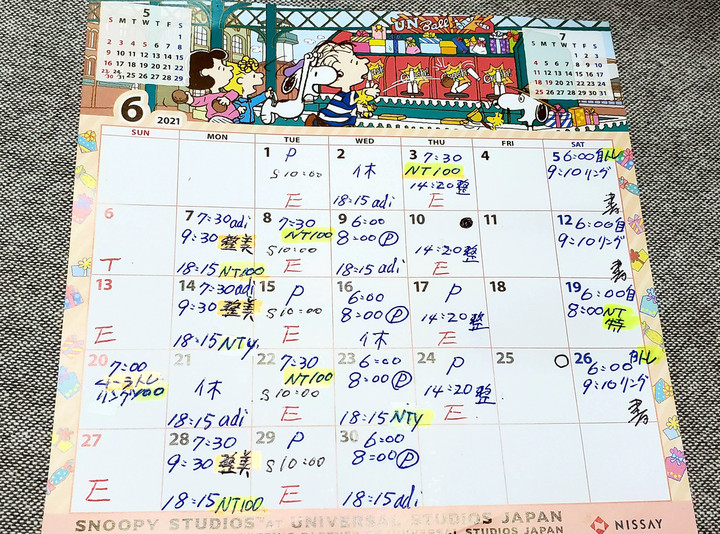 5
S M T W T F S
1
2 3 4 5 6 7 8
9 10 11 12 13 14 15
16 17 18 19 20 21 22
23/30 24/31 25 26 27 28 29
U.N. Ball
7
S M T W T F S
1 2 3
4 5 6 7 8 9 10
11 12 13 14 15 16 17
18 19 20 21 22 23 24
25 26 27 28 29 30 31
6 2021
SUN MON TUE WED THU FRI SAT
1 P
S 10:00
E
2
休
18:15 adi
3 7:30
NT100
14:20 整
E
4
5 6:00 自トレ
9:10 リング
書
6
T
7 7:30 adi
9:30 整美
18:15 NT100
8 7:30
NT100
S 10:00
E
9 6:00
8:00 Ⓟ
18:15 adi
10 ●
14:20 整
E
11
12 6:00 自
9:10 リング
書
13
E
14 7:30 adi
9:30 整美
18:15 NTy.
15 P
S 10:00
E
16 6:00
8:00 Ⓟ
休
17 P
14:20 整
E
18
19 6:00 自
8:00 NT
特
20 7:00
21
休
18:15 adi
22 7:30
NT100
S 10:00
E
23 6:00
8:00 Ⓟ
18:15 NTy
24 P
14:20 整
E
25 ○
26 自トレ
6:00
9:10 リング
書
27
E
28 7:30
9:30 整美
18:15 NT100
29 P
S 10:00
E
30 6:00
8:00 Ⓟ
18:15 adi
SNOOPY STUDIOS AT UNIVERSAL STUDIOS JAPAN
NISSAY